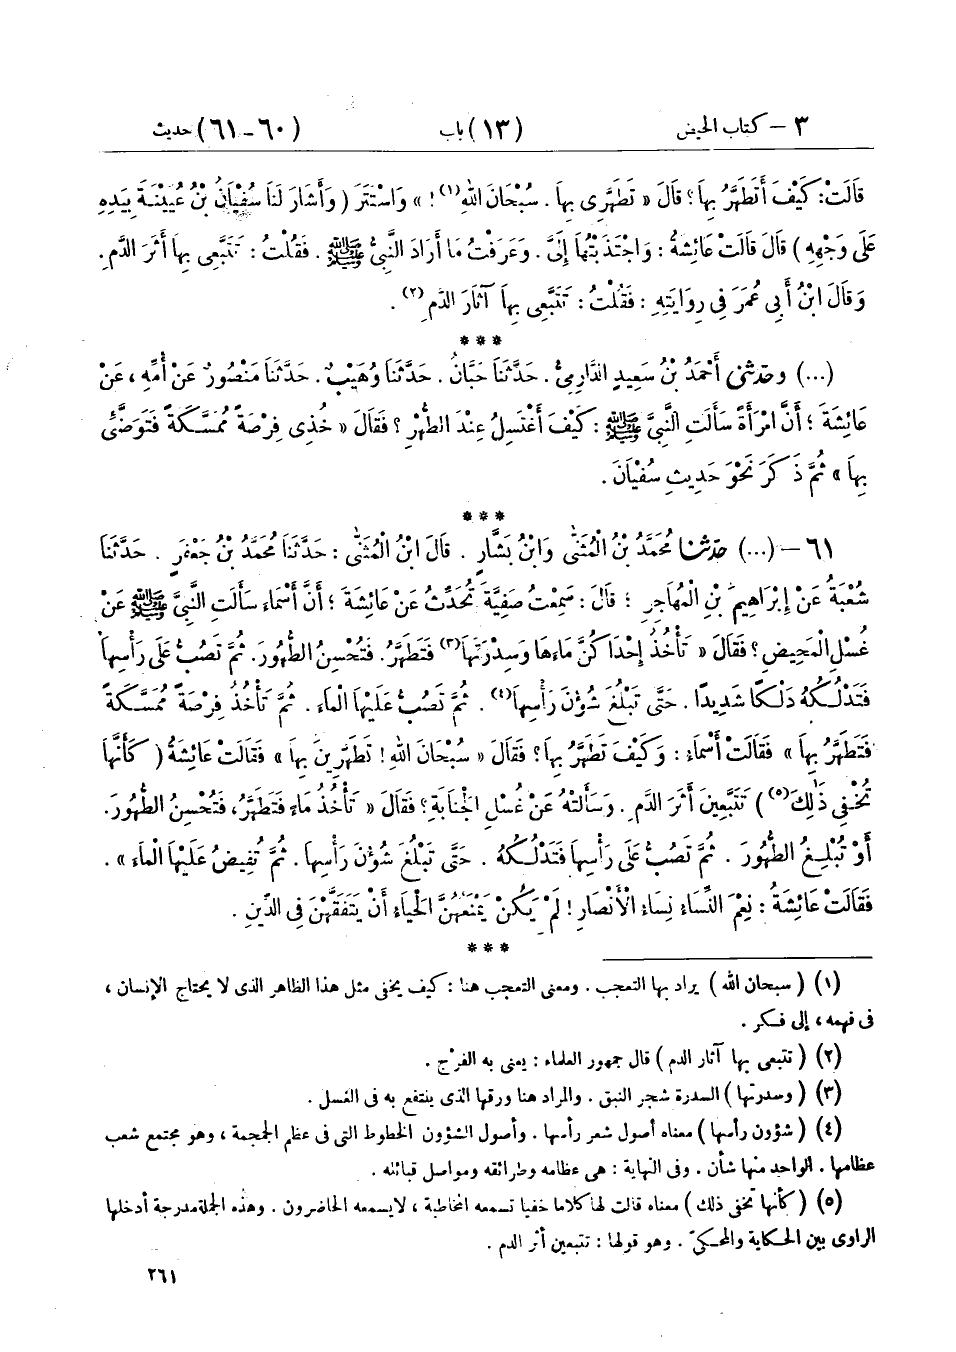 ٣ – كتاب الحيض (١٣) باب (٦٠ – ٦١) حديث
قَالَتْ: كَيْفَ أَتَطَهَّرُ بِهَا؟ قَالَ « تَطَهَّرِى بِهَا . سُبْحَانَ اللهِ(١)! » وَاسْتَتَرَ ( وَأَشَارَ لَنَا سُفْيَانُ بْنُ عُيَيْنَةَ بِيَدِهِ
عَلَى وَجْهِهِ ) قَالَ قَالَتْ عَائِشَةُ : وَاجْتَذَبْتُهَا إِلَىَّ . وَعَرَفْتُ مَا أَرَادَ النَّبِىُّ ﷺ . فَقُلْتُ : تَتَبَّعِى بِهَا أَثَرَ الدَّمِ .
وَقَالَ ابْنُ أَبِى عُمَرَ فِى رِوَايَتِهِ : فَقُلْتُ : تَتَبَّعِى بِهَا آثَارَ الدَّمِ(٢) .
***
(...) وحَدَّثَنِى أَحْمَدُ بْنُ سَعِيدٍ الدَّارِمِىُّ . حَدَّثَنَا حَبَّانُ . حَدَّثَنَا وُهَيْبٌ . حَدَّثَنَا مَنْصُورٌ عَنْ أُمِّهِ ، عَنْ
عَائِشَةَ ؛ أَنَّ امْرَأَةً سَأَلَتِ النَّبِىَّ ﷺ : كَيْفَ أَغْتَسِلُ عِنْدَ الطُّهْرِ ؟ فَقَالَ « خُذِى فِرْصَةً مُمَسَّكَةً فَتَوَضَّئِى
بِهَا » ثُمَّ ذَكَرَ نَحْوَ حَدِيثِ سُفْيَانَ .
***
٦١ – (...) حَدَّثَنَا مُحَمَّدُ بْنُ الْمُثَنَّى وَابْنُ بَشَّارٍ . قَالَ ابْنُ الْمُثَنَّى : حَدَّثَنَا مُحَمَّدُ بْنُ جَعْفَرٍ . حَدَّثَنَا
شُعْبَةُ عَنْ إِبْرَاهِيمَ بْنِ الْمُهَاجِرِ ؛ قَالَ : سَمِعْتُ صَفِيَّةَ تُحَدِّثُ عَنْ عَائِشَةَ ؛ أَنَّ أَسْمَاءَ سَأَلَتِ النَّبِىَّ ﷺ عَنْ
غُسْلِ الْمَحِيضِ ؟ فَقَالَ « تَأْخُذُ إِحْدَاكُنَّ مَاءَهَا وَسِدْرَتَهَا(٣) فَتَطَهَّرُ . فَتُحْسِنُ الطُّهُورَ . ثُمَّ تَصُبُّ عَلَى رَأْسِهَا
فَتَدْلُكُهُ دَلْكًا شَدِيدًا . حَتَّى تَبْلُغَ شُؤُنَ رَأْسِهَا(٤) . ثُمَّ تَصُبُّ عَلَيْهَا الْمَاءَ . ثُمَّ تَأْخُذُ فِرْصَةً مُمَسَّكَةً
فَتَطَهَّرُ بِهَا » فَقَالَتْ أَسْمَاءُ : وَكَيْفَ تَطَهَّرُ بِهَا؟ فَقَالَ « سُبْحَانَ اللهِ ! تَطَهَّرِينَ بِهَا » فَقَالَتْ عَائِشَةُ ( كَأَنَّهَا
تُخْفِى ذَلِكَ(٥) ) تَتَبَّعِينَ أَثَرَ الدَّمِ . وَسَأَلَتْهُ عَنْ غُسْلِ الْجَنَابَةِ ؟ فَقَالَ « تَأْخُذُ مَاءً فَتَطَهَّرُ ، فَتُحْسِنُ الطُّهُورَ .
أَوْ تُبْلِغُ الطُّهُورَ . ثُمَّ تَصُبُّ عَلَى رَأْسِهَا فَتَدْلُكُهُ . حَتَّى تَبْلُغَ شُؤُنَ رَأْسِهَا . ثُمَّ تُفِيضُ عَلَيْهَا الْمَاءَ » .
فَقَالَتْ عَائِشَةُ : نِعْمَ النِّسَاءُ نِسَاءُ الْأَنْصَارِ ! لَمْ يَكُنْ يَمْنَعُهُنَّ الْحَيَاءُ أَنْ يَتَفَقَّهْنَ فِى الدِّينِ .
***
(١) ( سبحان الله ) يراد بها التعجب . ومعنى التعجب هنا : كيف يخفى مثل هذا الظاهر الذى لا يحتاج الإنسان ،
فى فهمه ، إلى فكر .
(٢) ( تتبعى بها آثار الدم ) قال جمهور العلماء : يعنى به الفرْج .
(٣) ( وسدرتها ) السدرة شجر النبق . والمراد هنا ورقها الذى ينتفع به فى الغسل .
(٤) ( شؤون رأسها ) معناه أصول شعر رأسها . وأصول الشؤون الخطوط التى فى عظم الجمجمة ، وهو مجتمع شعب
عظامها . الواحد منها شأن . وفى النهاية : هى عظامه وطرائقه ومواصل قبائله .
(٥) ( كأنها تخفى ذلك ) معناه قالت لها كلاما خفيا تسمعه المخاطبة ، لا يسمعه الحاضرون . وهذه الجملة مدرجة أدخلها
الراوى بين الحكاية والمحكىّ . وهو قولها : تتبعين أثر الدم .
٢٦١